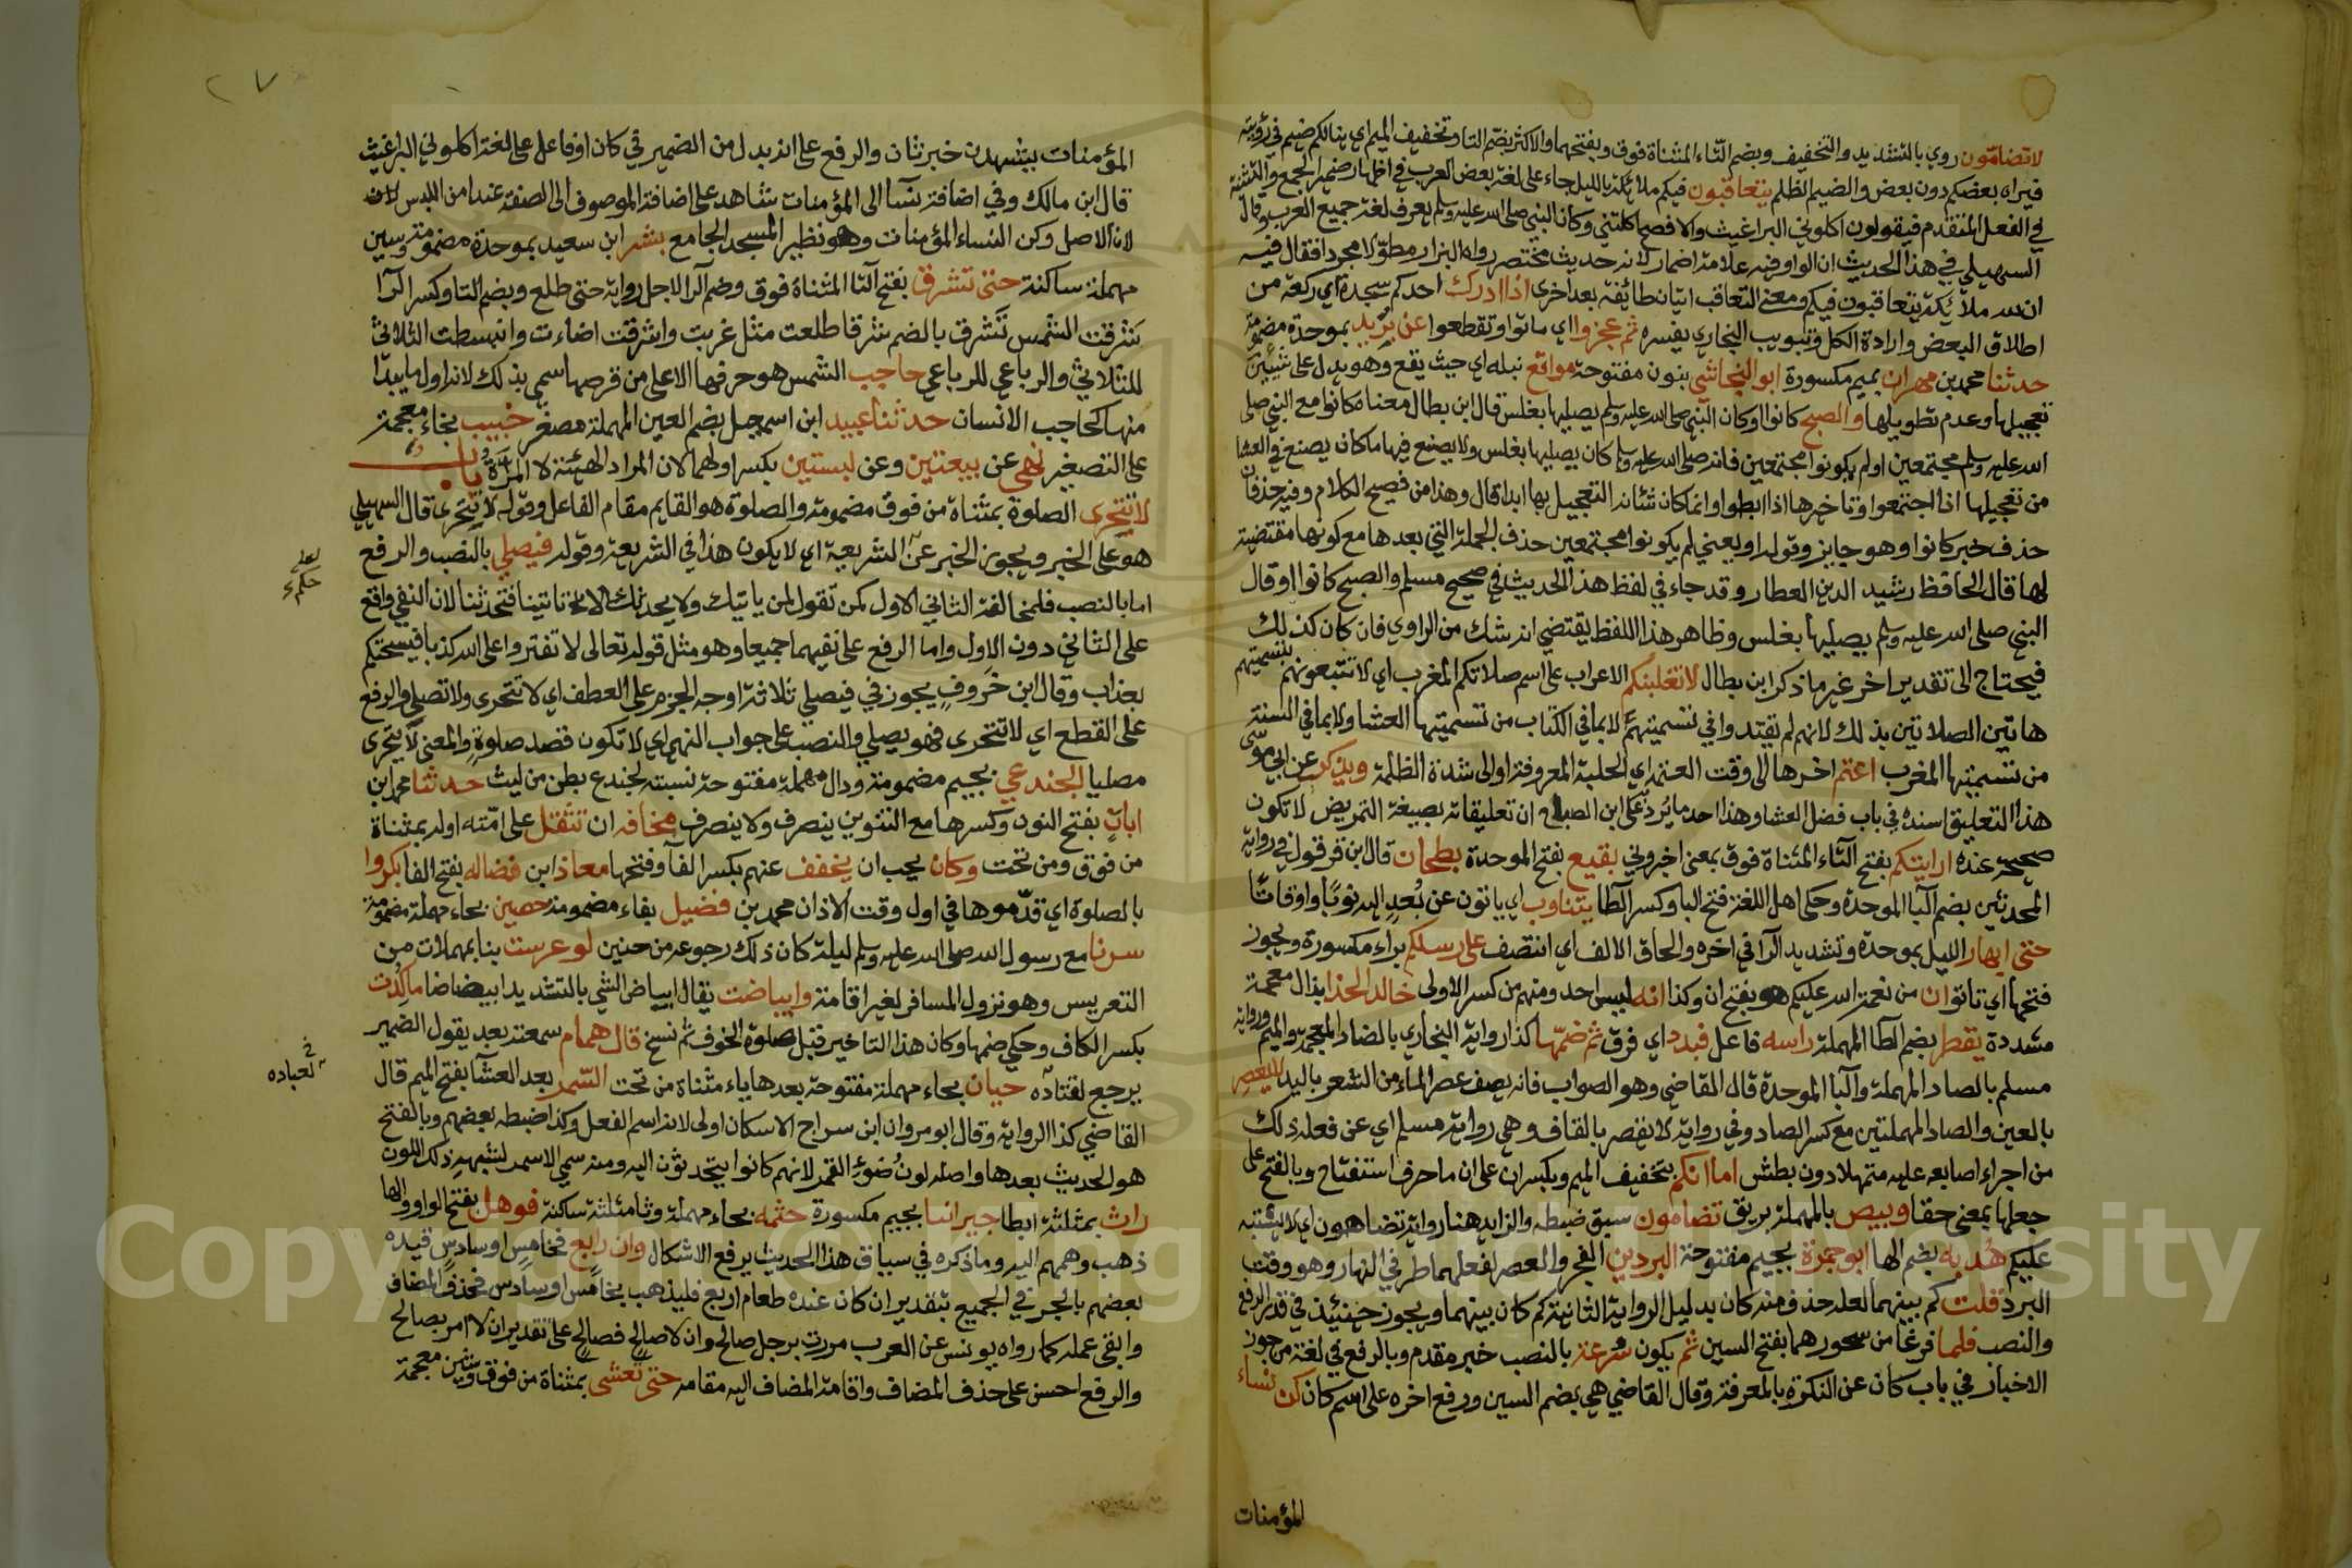 لا تضامون روي بالتشديد والتخفيف وبضم التاء المثناة فوق وبفتحهما والاكثر بضم التا وتخفيف الميم اي ينالكم ضيم في رؤيته
فيراه بعضكم دون بعض والضيم الظلم يتعاقبون فيكم ملائكة بالليل جاء على لغة بعض العرب في اظهار ضمير الجمع والتثنية
في الفعل المتقدم فيقولون اكلوني البراغيث والافصح اكلتني وكان النبي صلى الله عليه وسلم يعرف لغة جميع العرب وقال
السهيلي في هذا الحديث ان الواو فيه علامة اضمار لانه حديث مختصر رواه البزار مطولا مجردا فقال فيه
ان لله ملائكة يتعاقبون فيكم ومعنى التعاقب اتيان طائفة بعد اخرى اذا ادرك احدكم سجدة اي ركعة من
اطلاق البعض وارادة الكل وتبويب البخاري يفسره ثم عجزوا اي ماتوا وتقطعوا عن بريد بموحدة مضمومة
حدثنا محمد بن مهران بميم مكسورة ابو النجاشي بنون مفتوحة مواقع نبله اي حيث يقع وهو يدل على شيئين
تعجيلها وعدم تطويلها والصبح كانوا او كان النبي صلى الله عليه وسلم يصليها بغلس قال ابن بطال معناه كانوا مع النبي صلى
الله عليه وسلم مجتمعين او لم يكونوا مجتمعين فانه صلى الله عليه وسلم كان يصليها بغلس ولا يصنع فيها ما كان يصنع في العشا
من تعجيلها اذا اجتمعوا وتاخيرها اذا ابطوا وانما كان شانه التعجيل بها ابدا قال وهذا من فصيح الكلام وفيه حذفان
حذف خبر كانوا وهو جايز وقوله او يعني لم يكونوا مجتمعين حذف الجملة التي بعدها مع كونها مقتضية
لها قال الحافظ رشيد الدين العطار وقد جاء في لفظ هذا الحديث في صحيح مسلم والصبح كانوا او قال
النبي صلى الله عليه وسلم يصليها بغلس وظاهر هذا اللفظ يقتضي انه شك من الراوي فان كان كذلك
فيحتاج الى تقدير اخر غير ما ذكر ابن بطال لا تغلبنكم الاعراب على اسم صلاتكم المغرب اي لا تتبعونهم بتسميتهم
هاتين الصلاتين بذلك لانهم لم يقتدوا في تسميتهم لا بما في الكتاب من تسميتها العشا ولا بما في السنة
من تسميتها المغرب اعتم اخرها الى وقت العتمة اي الحلبة المعروفة او الى شدة الظلمة ويذكر عن ابي موسى
هذا التعليق اسنده في باب فضل العشا وهذا احد ما يرد على ابن الصلاح ان تعليقاته بصيغة التمريض لا تكون
صحيحة عنده ارايتكم بفتح التاء المثناة فوق بمعنى اخبروني بقيع بفتح الموحدة بطحان قال ابن قرقول في رواية
المحدثين بضم البا الموحدة وحكى اهل اللغة فتح البا وكسر الطا يتناوب اي ياتون عن بعد اليه نوبا واوقاتا
حتى ابهار الليل بموحدة وتشديد الرا في اخره والحاق الالف اي انتصف على رسلكم براء مكسورة ويجوز
فتحها اي تانوا ان من نعمة الله عليكم هو بفتح ان وكذا انه ليس احد ومنهم من كسر الاولى خالد الحذا بذال معجمة
مشددة يقطر بضم الطا المهملة راسه فاعل فبدد اي فرق ثم ضمها كذا رواية البخاري بالضاد المعجمة والميم ورواية
مسلم بالصاد المهملة والبا الموحدة قال القاضي وهو الصواب فانه يصف عصر الماء من الشعر باليد لا يعصر
بالعين والصاد المهملتين مع كسر الصاد وفي رواية لا يقصر بالقاف وهي رواية مسلم اي عن فعله ذلك
من اجراء اصابعه عليه متمهلا دون بطش اما انكم بتخفيف الميم ويكسر ان على ان ما حرف استفتاح وبالفتح على
جعلها بمعنى حقا وبيص بالمهملة بريق تضامون سبق ضبطه والزايد هنا رواية تضاهون اي لا يشتبه
عليكم هدبه بضم الها ابو جمرة بجيم مفتوحة البردين الفجر والعصر لفعلهما طرفي النهار وهو وقت
البرد قلت كم بينهما لعله حذف منه كان بدليل الرواية الثانية كم كان بينهما ويجوز حينئذ في قدر الرفع
والنصب فلما فرغا من سحورهما بفتح السين ثم يكون سرعة بالنصب خبر مقدم وبالرفع في لغة من جوز
الاخبار في باب كان عن النكرة بالمعرفة وقال القاضي هي بضم السين ورفع اخره على اسم كان كن نساء
المؤمنات
٢٧
المؤمنات يشهدن خبر ثان والرفع على انه بدل من الضمير في كان او فاعل على لغة اكلوني البراغيث
قال ابن مالك وفي اضافة نسا الى المؤمنات شاهد على اضافة الموصوف الى الصفة عند امن اللبس لان
لان الاصل وكن النساء المؤمنات وهو نظير المسجد الجامع بشر ابن سعيد بموحدة مضمومة وسين
مهملة ساكنة حتى تشرق بفتح التا المثناة فوق وضم الرا لاجل رواية حتى طلع وبضم التا وكسر الرا
شرقت الشمس تشرق بالضم شرقا طلعت مثل غربت واشرقت اضاءت وانبسطت الثلاثي
للثلاثي والرباعي للرباعي حاجب الشمس هو حرفها الاعلى من قرصها سمي بذلك لانه اول ما يبدا
منها كحاجب الانسان حدثنا عبيد ابن اسمعيل بضم العين المهملة مصغر خبيب بخاء معجمة
على التصغير نهى عن بيعتين وعن لبستين بكسر اولهما لان المراد الهيئة لا المرة باب
لا تتحرى الصلوة بمثناة من فوق مضمومة والصلوة هو القايم مقام الفاعل وقوله لا يتحرى قال السهيلي
هو على الخبر ويجوز الخبر عن الشريعة اي لا يكون هذا في الشريعة وقوله فيصلي بالنصب والرفع
اما بالنصب فلمخالفة الثاني الاول كمن تقول لمن ياتيك ولا يحدثك لا تاتينا فتحدثنا لان النفي واقع
على الثاني دون الاول واما الرفع على نفيهما جميعا وهو مثل قوله تعالى لا تفتروا على الله كذبا فيسحتكم
بعذاب وقال ابن خروف يجوز في فيصلي ثلاثة اوجه الجزم على العطف اي لا تتحرى ولا تصلي والرفع
على القطع اي لا تتحرى فهو يصلي والنصب على جواب النهي اي لا تكون قصد صلوة والمعنى لا يتحرى
مصليا الجندعي بجيم مضمومة ودال مهملة مفتوحة نسبته لجندع بطن من ليث حدثنا محمد ابن
ابان بفتح النون وكسرها مع التنوين ينصرف ولا ينصرف مخافة ان تثقل على امته اوله بمثناة
من فوق ومن تحت وكان يحب ان يخفف عنهم بكسر الفا وفتحها معاذ ابن فضاله بفتح الفا بكروا
بالصلوة اي قدموها في اول وقت الاذان محمد بن فضيل بفاء مضمومة حصين بحاء مهملة مضمومة
سرنا مع رسول الله صلى الله عليه وسلم ليلة كان ذلك رجوعه من حنين لو عرست بنا بمهملات من
التعريس وهو نزول المسافر لغير اقامة وابياضت يقال ابياض الشي بالتشديد ابيضاضا ما كدت
بكسر الكاف وحكي ضمها وكان هذا التاخير قبل صلوة الخوف ثم نسخ قال همام سمعته بعد يقول الضمير
يرجع لقتاده حيان بحاء مهملة مفتوحة بعدها ياء مثناة من تحت السمر بعد العشا بفتح الميم قال
القاضي كذا الرواية وقال ابو مروان ابن سراج الاسكان اولى لانه اسم الفعل وكذا ضبطه بعضهم وبالفتح
هو الحديث بعدها واصله لون ضوء القمر لانهم كانوا يتحدثون اليه ومنه سمي الاسمر لشبهه ذلك اللون
راث بمثلثة ابطا جيراننا بجيم مكسورة حثمه بحاء مهملة وثا مثلثة ساكنة فوهل بفتح الواو والها
ذهب وهمهم اليه وما ذكره في سياق هذا الحديث يرفع الاشكال وان رابع فخامس او سادس قيده
بعضهم بالجر في الجميع بتقدير ان كان عنده طعام اربع فليذهب بخامس او سادس فحذف المضاف
وابقى عمله كما رواه يونس عن العرب مررت برجل صالح وان لا صالح فصالح على تقدير ان لا امر بصالح
والرفع احسن على حذف المضاف واقامة المضاف اليه مقامه حتى تعشى بمثناة من فوق وشين معجمة